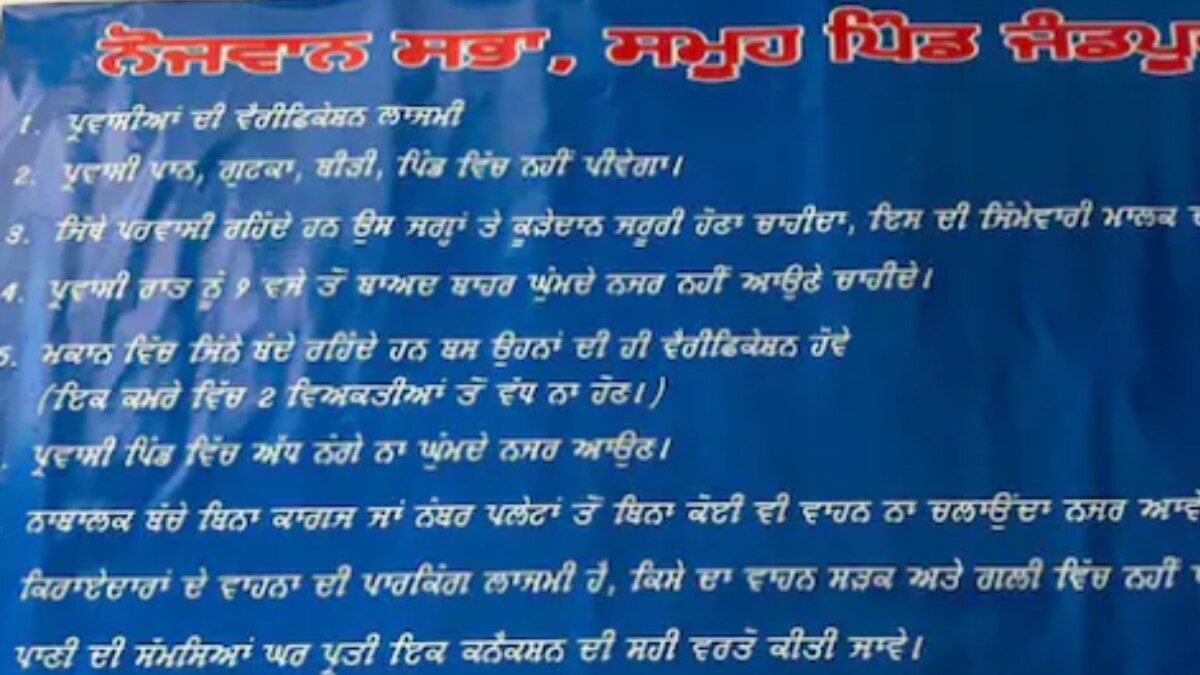 ਨੌਜਵਾਨ ਸਭਾ, ਸਮੂਹ ਪਿੰਡ ਜੰਡਪੁ
1. ਪ੍ਰਵਾਸੀਆਂ ਦੀ ਵੈਰੀਫਿਕੇਸ਼ਨ ਲਾਜਮੀ
2. ਪ੍ਰਵਾਸੀ ਪਾਨ, ਗੁਟਕਾ, ਬੀੜੀ, ਪਿੰਡ ਵਿੱਚ ਨਹੀਂ ਪੀਵੇਗਾ।
3. ਜਿੱਥੇ ਪਰਵਾਸੀ ਰਹਿੰਦੇ ਹਨ ਉਸ ਜਗ੍ਹਾਂ ਤੇ ਕੂੜੇਦਾਨ ਜਰੂਰੀ ਹੋਣਾ ਚਾਹੀਦਾ, ਇਸ ਦੀ ਜਿੰਮੇਵਾਰੀ ਮਾਲਕ
4. ਪ੍ਰਵਾਸੀ ਰਾਤ ਨੂੰ 9 ਵਜੇ ਤੋਂ ਬਾਅਦ ਬਾਹਰ ਘੁੰਮਦੇ ਨਜਰ ਨਹੀਂ ਆਉਣੇ ਚਾਹੀਦੇ।
5. ਮਕਾਨ ਵਿੱਚ ਜਿੰਨੇ ਬੰਦੇ ਰਹਿੰਦੇ ਹਨ ਬਸ ਉਹਨਾਂ ਦੀ ਹੀ ਵੈਰੀਫਿਕੇਸ਼ਨ ਹੋਵੇ
(ਇਕ ਕਮਰੇ ਵਿੱਚ 2 ਵਿਅਕਤੀਆਂ ਤੋਂ ਵੱਧ ਨਾ ਹੋਣ।)
ਪ੍ਰਵਾਸੀ ਪਿੰਡ ਵਿੱਚ ਅੱਧ ਨੰਗੇ ਨਾ ਘੁੰਮਦੇ ਨਜਰ ਆਉਣ।
ਨਾਬਾਲਕ ਬੱਚੇ ਬਿਨਾ ਕਾਗਜ ਜਾਂ ਨੰਬਰ ਪਲੇਟਾਂ ਤੋਂ ਬਿਨਾ ਕੋਈ ਵੀ ਵਾਹਨ ਨਾ ਚਲਾਉਂਦਾ ਨਜਰ ਆਵੇ
ਕਿਰਾਏਦਾਰਾਂ ਦੇ ਵਾਹਨਾ ਦੀ ਪਾਰਕਿੰਗ ਲਾਜਮੀ ਹੈ, ਕਿਸੇ ਦਾ ਵਾਹਨ ਸੜਕ ਅਤੇ ਗਲੀ ਵਿੱਚ ਨਹੀਂ
ਪਾਣੀ ਦੀ ਸੱਮਸਿਆਂ ਘਰ ਪ੍ਰਤੀ ਇਕ ਕਨੈਕਸ਼ਨ ਦੀ ਸਹੀ ਵਰਤੋ ਕੀਤੀ ਜਾਵੇ।